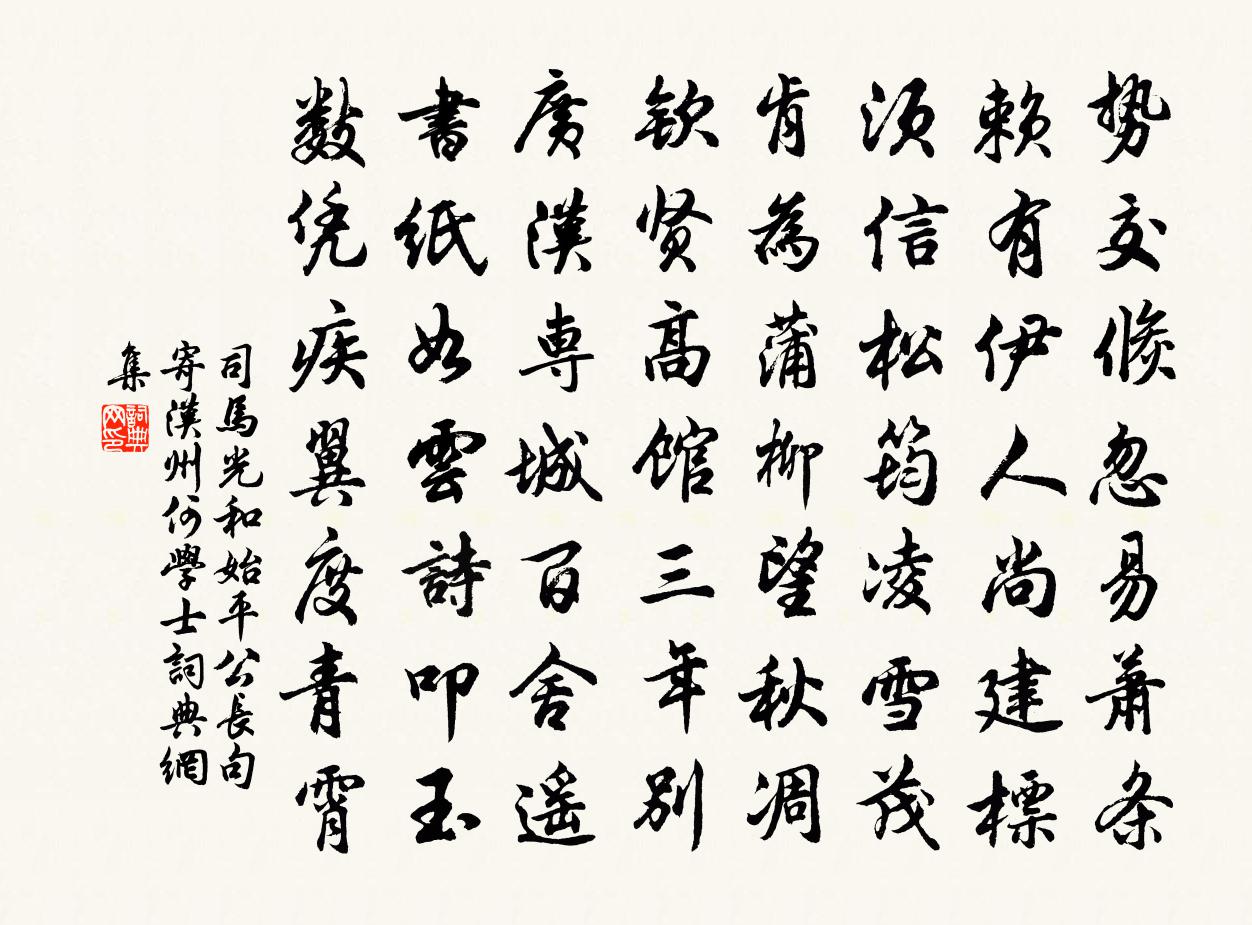 势交倏忽易萧条
赖有伊人尚建標
須信松筠凌雪茂
肯為蒲柳望秋凋
钦贤高馆三年别
廣漢専城百舍遥
書紙如雲詩叩玉
数凭疾翼度青霄
司馬光和始平公長句
寄漢州何學士詞典網
集
詞典网印